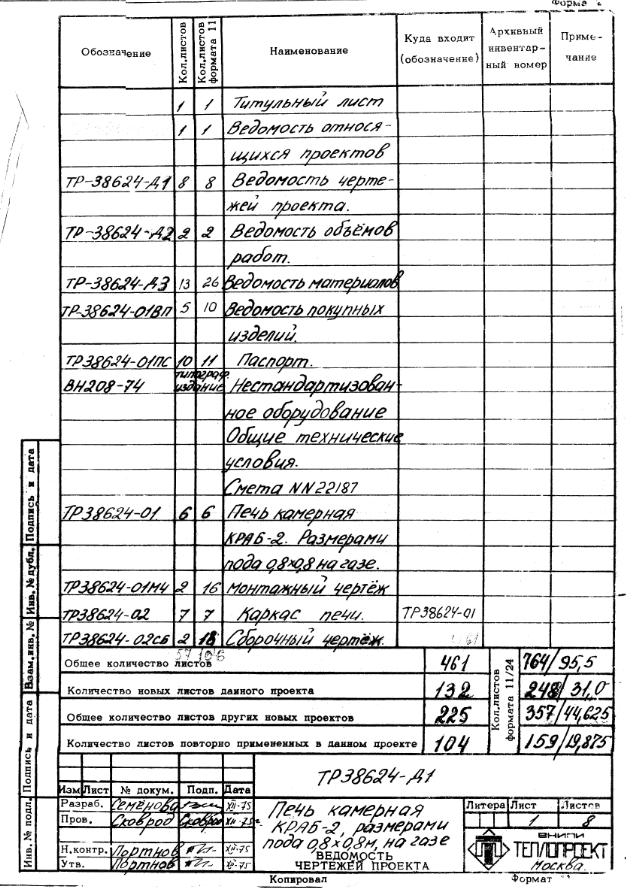 Форма 2
Обозначение Кол.листов Кол.листов формата 11 Наименование Куда входит (обозначение) Архивный инвентарный номер Примечание
1 1 Титульный лист
1 1 Ведомость относя-
щихся проектов
ТР-38624-Д1 8 8 Ведомость черте-
жей проекта.
ТР-38624-Д2 2 2 Ведомость объёмов
работ.
ТР-38624-Д3 13 26 Ведомость материалов
ТР-38624-01ВП 5 10 Ведомость покупных
изделий.
ТР38624-01ПС 10 11 Паспорт.
ВН208-74 типограф. издание Нестандартизован-
ное оборудование
Общие технические
условия.
Смета NN22187
ТР38624-01 6 6 Печь камерная
КРАБ-2. Размерами
пода 0,8х0,8 на газе.
ТР38624-01МЧ 2 16 Монтажный чертёж
ТР38624-02 7 7 Каркас печи. ТР38624-01
ТР38624-02СБ 2 18 Сборочный чертеж.
Общее количество листов 461 Кол.листов формата 11/24 764/95,5
Количество новых листов данного проекта 132 248/31,0
Общее количество листов других новых проектов 225 357/44,625
Количество листов повторно примененных в данном проекте 104 159/19,875
ТР38624-Д1
Изм Лист № докум. Подп. Дата
Разраб. Семёнова XII-75
Пров. Сковрод XII-75
Н.контр. Портнов XII-75
Утв. Портнов XII-75
Печь камерная
КРАБ-2, размерами
пода 0,8х0,8м, на газе
ВЕДОМОСТЬ
ЧЕРТЕЖЕЙ ПРОЕКТА
Литера Лист Листов
1 8
ВНИПИ
ТЕПЛОПРОЕКТ
Москва.
Копировал Формат
Инв. № подл. Подпись и дата Взам. инв. № Инв. № дубл. Подпись и дата